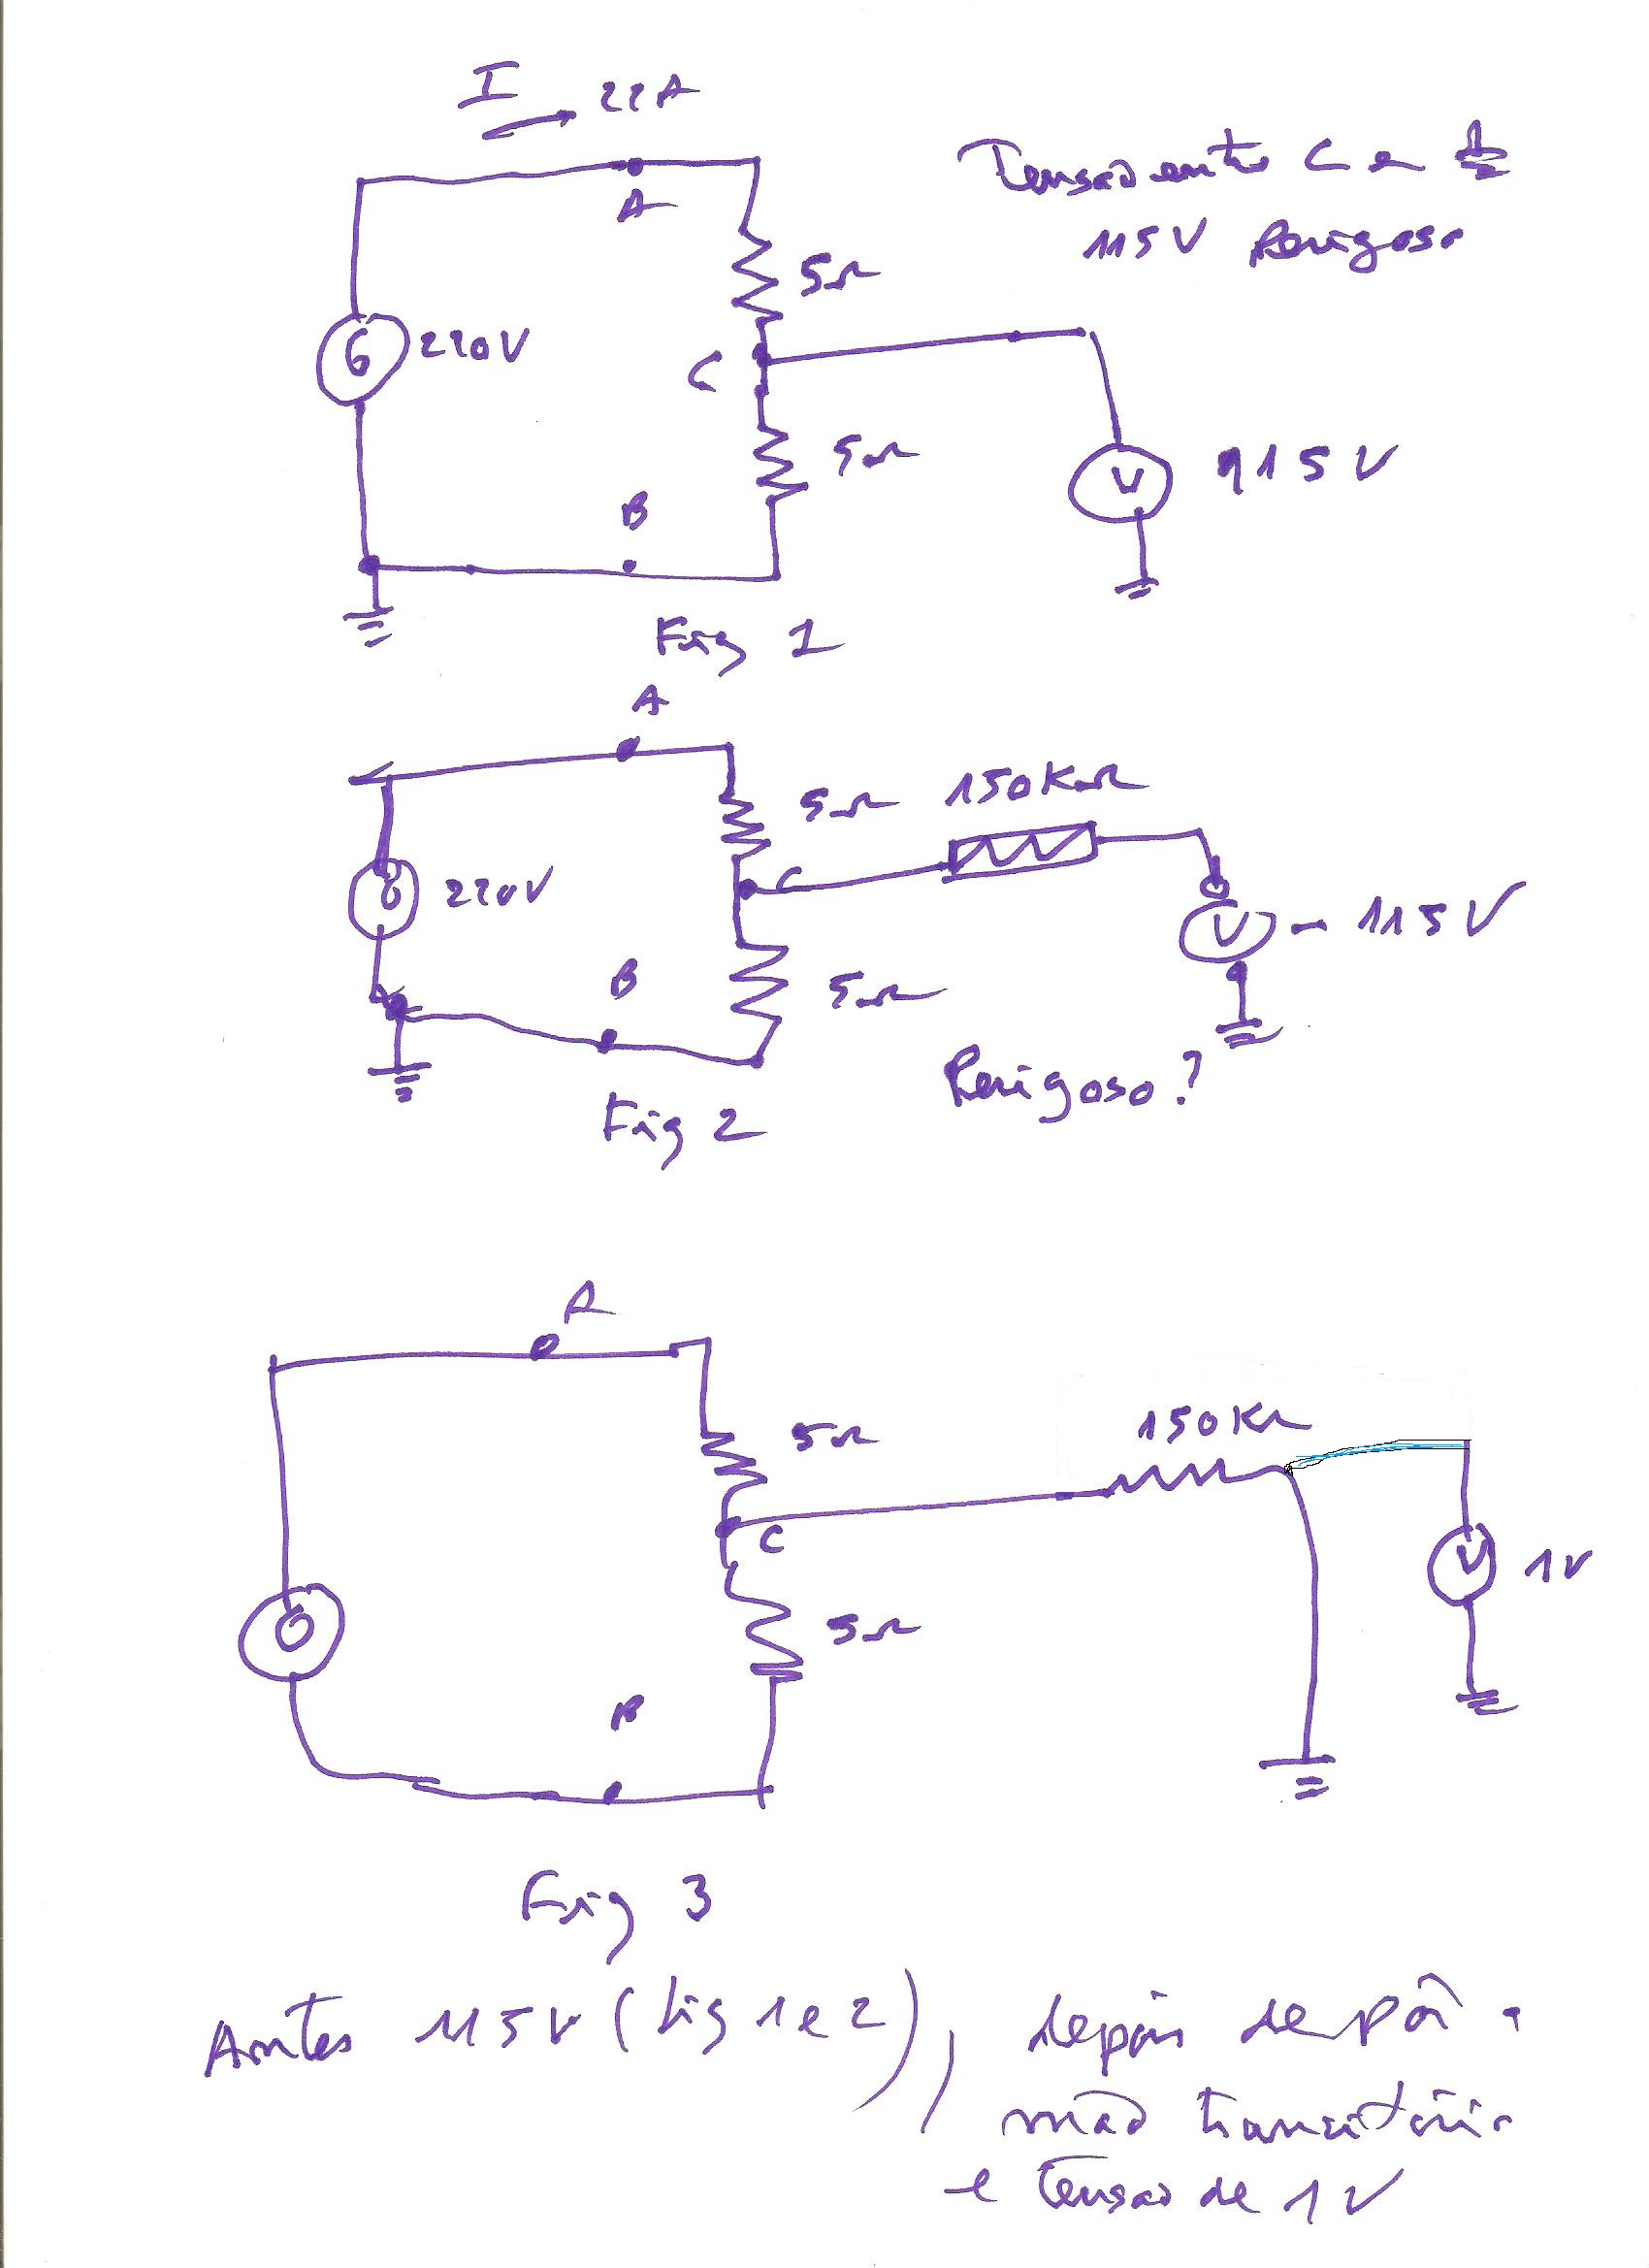 I 22A
Tensão entre C e
115V Perigoso
A
5Ω
G 220V
C
5Ω
V 115V
B
Fig 1
A
5Ω 150KΩ
C
G 220V
V - 115V
B
5Ω
Perigoso?
Fig 2
A
5Ω
150KΩ
C
V 1V
G
5Ω
B
Fig 3
Antes 115V (fig 1 e 2), depois de pôr a
mão transitória
e tensão de 1V